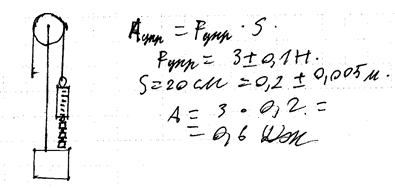 Aупр = Fупр · S.
Fупр = 3 ± 0,1 Н.
S = 20 см = 0,2 ± 0,005 м.
A = 3 · 0,2 =
= 0,6 Дж